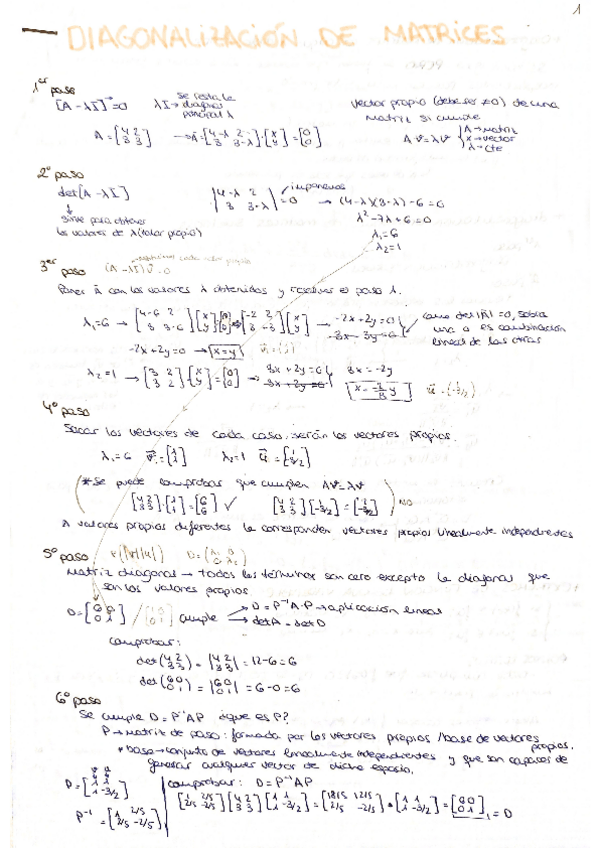 1
DIAGONALIZACIÓN DE MATRICES
1er paso
[A - λI] = 0 λI → se resta la diagonal principal λ
vector propio (debe ser ≠0) de una
matriz si cumple
A = [4 2; 3 3] → A·[4-λ 2; 3 3-λ]·[x; y] = [0; 0]
A·v = λv { A → matriz
x → vector
λ → cte
2º paso
det[A - λI] |4-λ 2; 3 3-λ| = 0 imponemos → (4-λ)(3-λ) - 6 = 0
sirve para obtener
los valores de λ (valor propio)
λ² - 7λ + 6 = 0
λ₁ = 6
λ₂ = 1
3er paso (A - λI) v̄ = 0
Poner A con los valores λ obtenidos y resolver el paso 1.
λ₁=6 → [4-6 2; 3 3-6][x; y]=[0; 0] [-2 2; 3 -3][x; y] → -2x+2y=0
3x-3y=0
como det |A| =0, sobra
una o es combinación
lineal de las otras
-2x+2y=0 → x=y
λ₂=1 → [3 2; 3 2][x; y]=[0; 0] → 3x+2y=0
3x+2y=0
3x=-2y
4º paso
Sacar los vectores de cada caso, serán los vectores propios.
λ₁=6 v̄=[1; 1] λ₂=1 ū=[1; -3/2]
*Se puede comprobar que cumplen Av=λv
[4 2; 3 3]·[1; 1]=[6; 6] ✓ [4 2; 3 3][1; -3/2]=[1; -3/2]
A valores propios diferentes le corresponden vectores propios linealmente independientes
5º paso
Matriz diagonal → todos los términos son cero excepto la diagonal que
son los valores propios.
D=[6 0; 0 1] cumple → D = P⁻¹A·P → aplicación lineal
→ det A = det D
comprobar:
det(4 2; 3 3) = |4 2; 3 3| = 12-6=6
det(6 0; 0 1) = |6 0; 0 1| = 6-0=6
6º paso
Se cumple D = P⁻¹AP ¿que es P?
P → matriz de paso: formada por los vectores propios / base de vectores propios.
*base → conjunto de vectores linealmente independientes y que son capaces de
generar cualquier vector de dicho espacio.
P=[1 1; 1 -3/2]
comprobar: D = P⁻¹AP
P⁻¹
= D